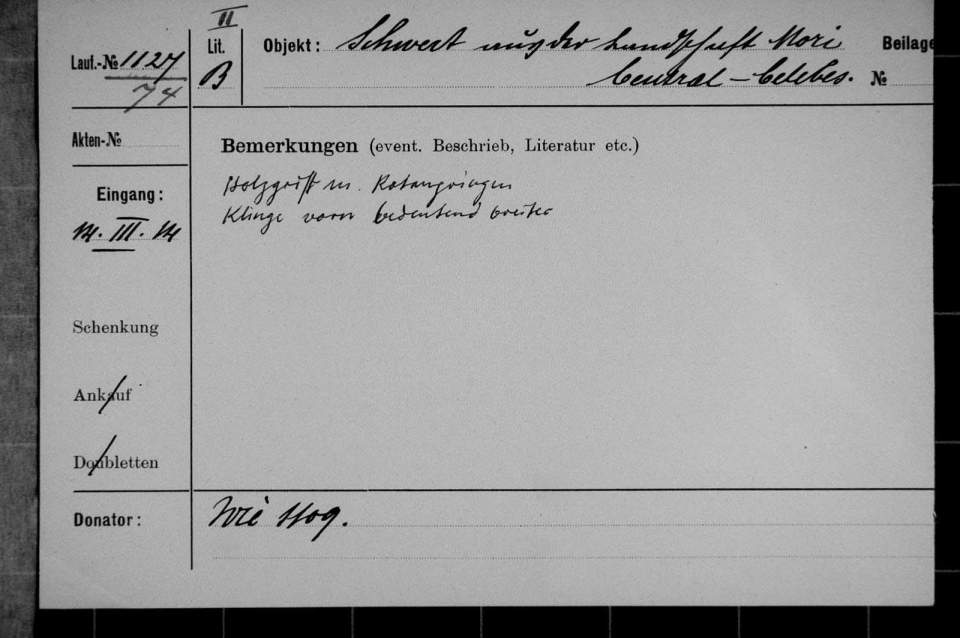 II
Lauf.-№ 1127
74
Lit.
B
Objekt: Schwert aus der Landschaft Mori
Central-Celebes.
Beilage
№
Akten-№
Bemerkungen (event. Beschrieb, Literatur etc.)
Eingang:
14. III. 14
Holzgriff m. Rotangringen
Klinge vorn bedeutend breiter
Schenkung
Ankauf
Doubletten
Donator: Wie 1109.